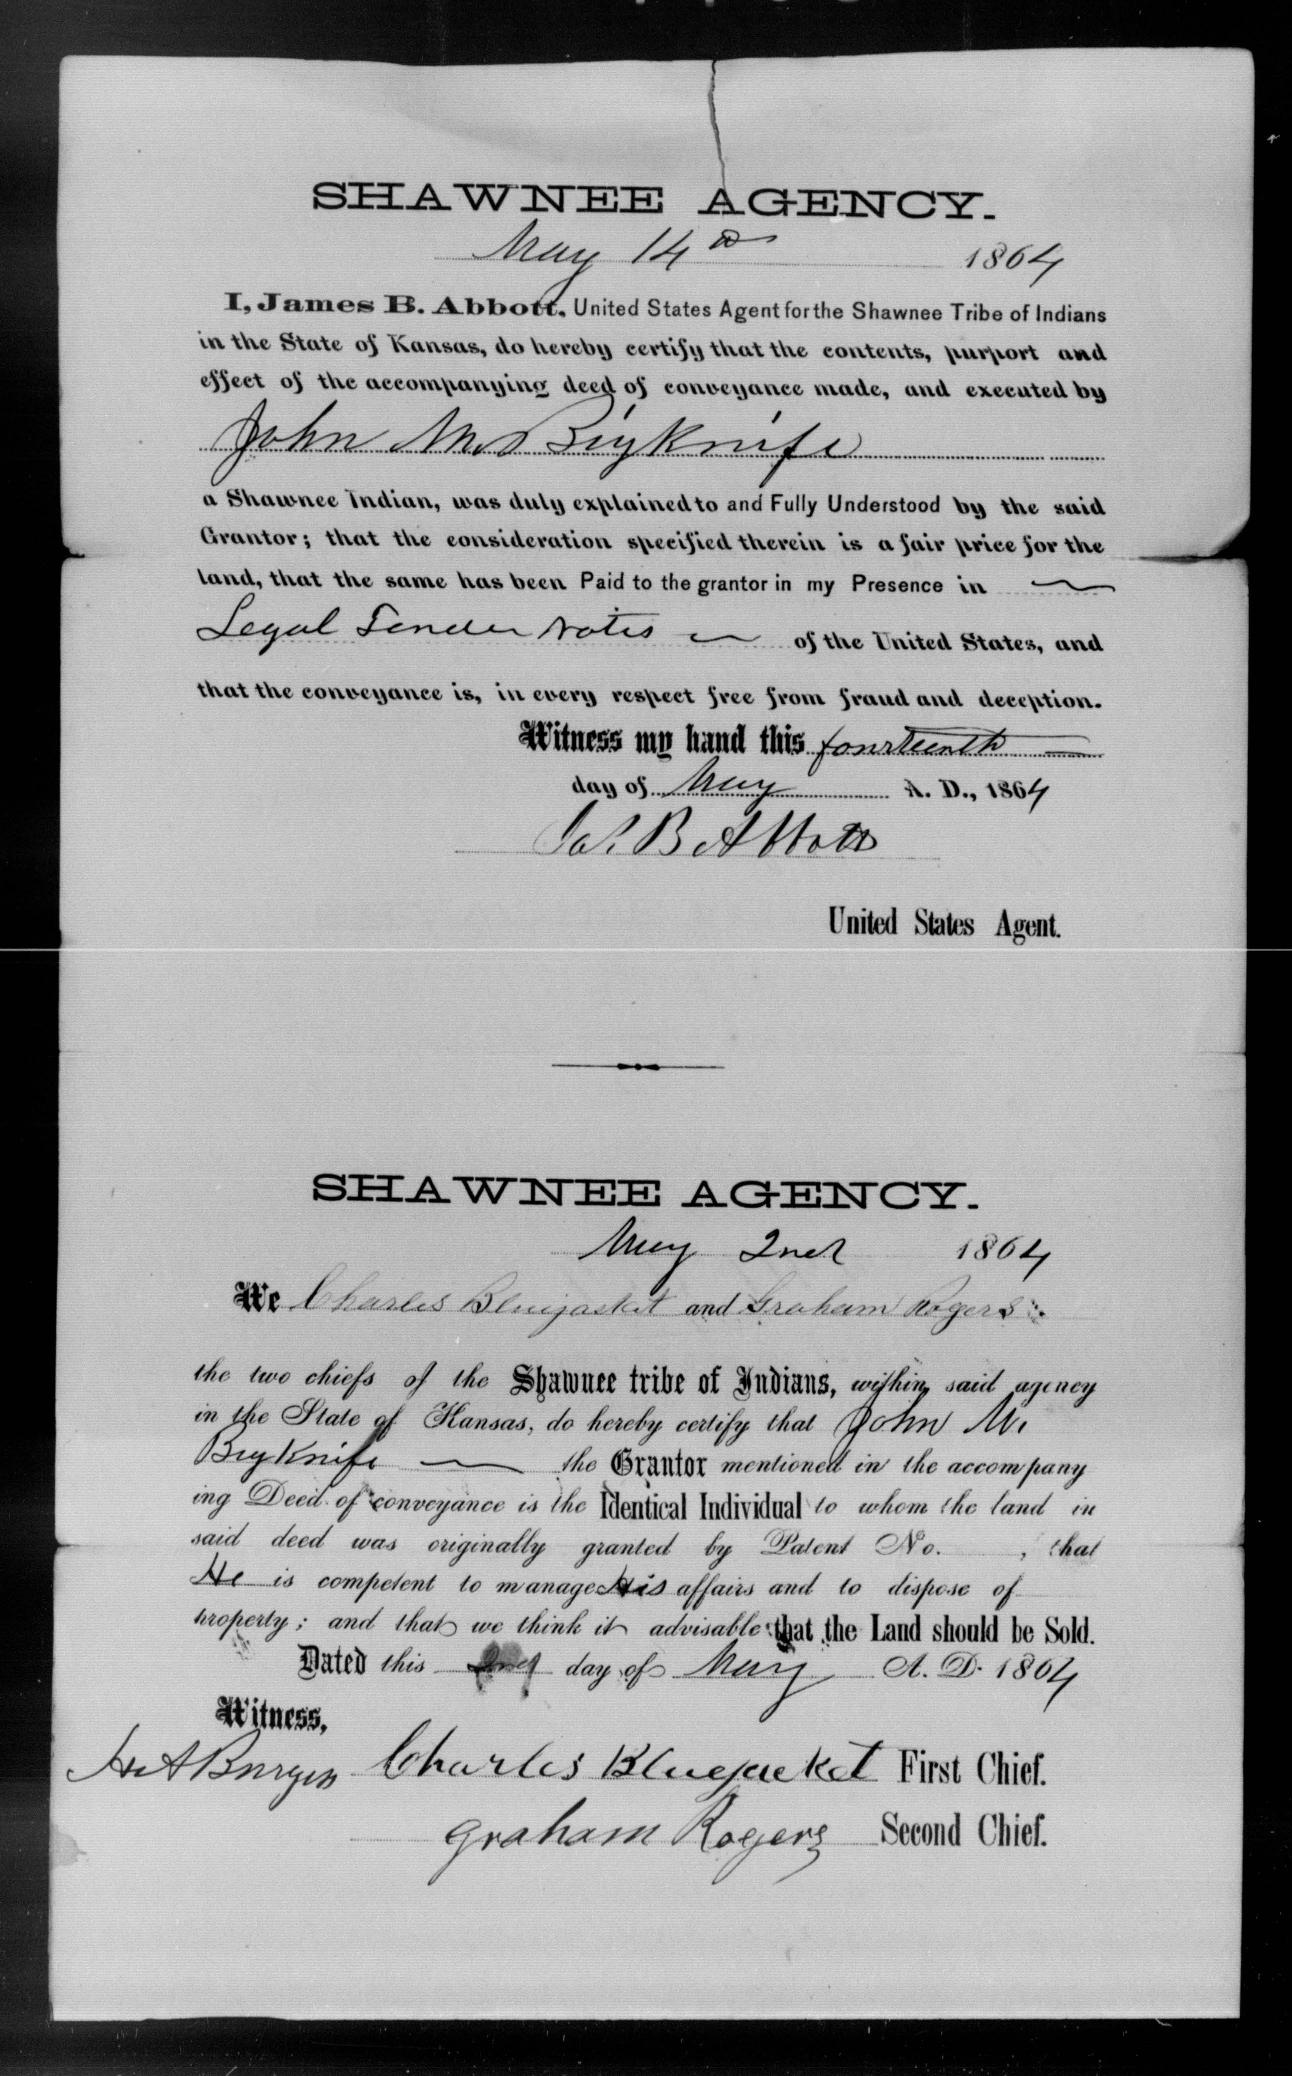 SHAWNEE AGENCY.
May 14th 1864
I, James B. Abbott, United States Agent for the Shawnee Tribe of Indians
in the State of Kansas, do hereby certify that the contents, purport and
effect of the accompanying deed of conveyance made, and executed by
John M. Bigknife
a Shawnee Indian, was duly explained to and Fully Understood by the said
Grantor; that the consideration specified therein is a fair price for the
land, that the same has been Paid to the grantor in my Presence in
Legal Tender Notes of the United States, and
that the conveyance is, in every respect free from fraud and deception.
Witness my hand this fourteenth
day of May A. D., 1864
Jas. B Abbott
United States Agent.
SHAWNEE AGENCY.
May 2nd 1864
We Charles Bluejacket and Graham Rogers
the two chiefs of the Shawnee tribe of Indians, within said agency
in the State of Kansas, do hereby certify that John M.
Bigknife the Grantor mentioned in the accompany
ing Deed of conveyance is the Identical Individual to whom the land in
said deed was originally granted by Patent No. , that
He is competent to manage His affairs and to dispose of
property; and that we think it advisable that the Land should be Sold.
Dated this 2nd day of May A. D. 1864
Witness,
Charles Bluejacket First Chief.
Graham Rogers Second Chief.